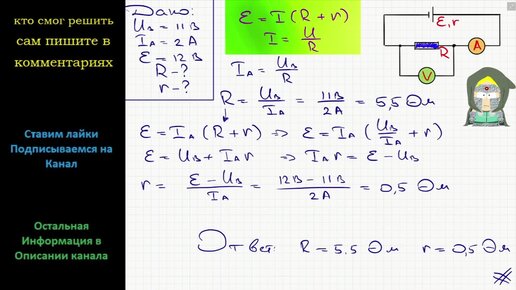 кто смог решить
сам пишите в
комментариях
Ставим лайки
Подписываемся на
Канал
Остальная
Информация в
Описании канала
Дано:
U_в = 11 В
I_A = 2 А
ℰ = 12 В
R - ?
r - ?
ℰ = I (R + r)
I = U/R
I_A = U_в/R
R = U_в/I_A = 11 В/2 А = 5,5 Ом
ℰ = I_A (R + r) => ℰ = I_A (U_в/I_A + r)
ℰ = U_в + I_A r => I_A r = ℰ - U_в
r = (ℰ - U_в)/I_A = (12 В - 11 В)/2 А = 0,5 Ом
Ответ: R = 5.5 Ом r = 0,5 Ом
ℰ, r
R
A
V